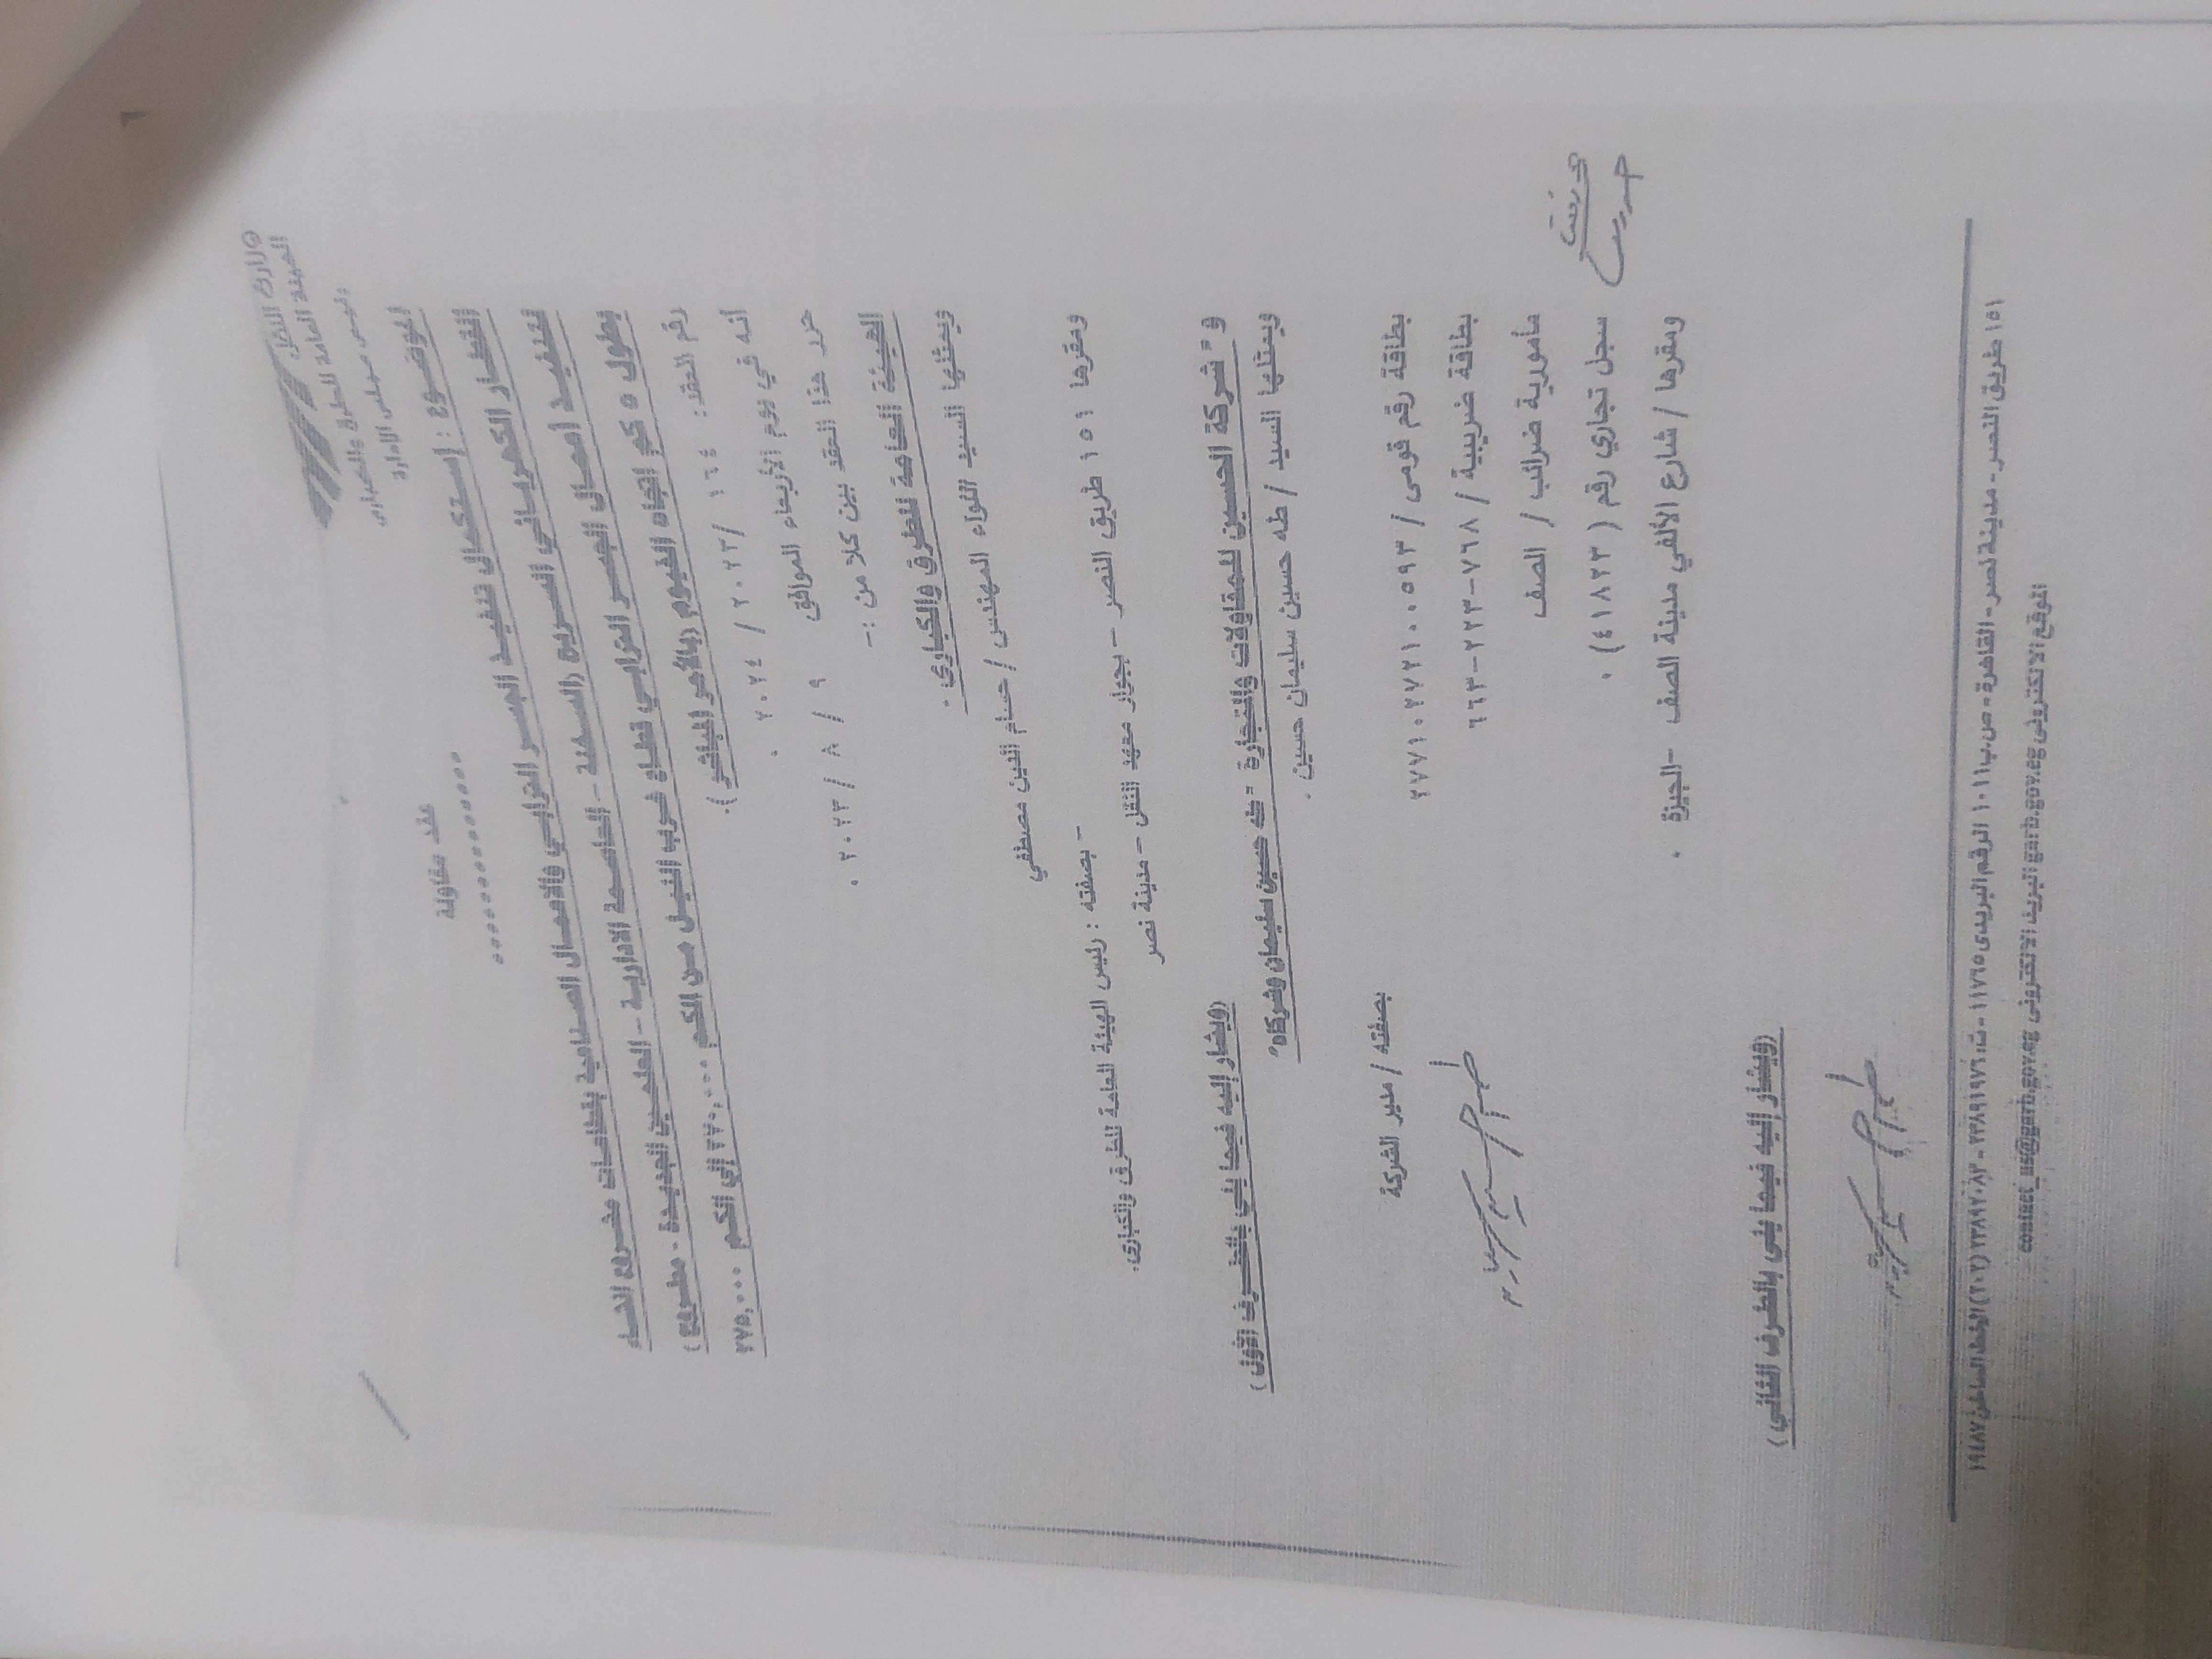 وزارة النقل
الهيئة العامة للطرق والكباري
رئيس مجلس الإدارة
عقد مقاولة
الموضوع : إستكمال تنفيذ الجسر الترابي والأعمال الصناعية بقطاعات مشروع انشاء
القطار الكهربائي السريع (السخنة - العاصمة الادارية - العلمين الجديدة - مطروح)
لتنفيذ أعمال الجسر الترابي قطاع غرب النيل من الكم ٢٧٠,٠٠٠ الي الكم ٢٧٥,٠٠٠
بطول ٥ كم اتجاه الفيوم (بالأمر المباشر).
رقم العقد: ١٦٤ /٢٠٢٣ / ٢٠٢٤ .
أنه في يوم الأربعاء الموافق ٩ / ٨ / ٢٠٢٣ .
حرر هذا العقد بين كلا من :-
الهيئة العامة للطرق والكباري .
ويمثلها السيد اللواء المهندس / حسام الدين مصطفي
- بصفته : رئيس الهيئة العامة للطرق والكباري.
ومقرها ١٥١ طريق النصر - بجوار معهد النقل - مدينة نصر
(ويشار إليه فيما يلي بالطرف الأول)
و " شركة الحسين للمقاولات والتجارة - طه حسين سليمان وشركاه"
ويمثلها السيد / طه حسين سليمان حسين .
بصفته / مدير الشركة
بطاقة رقم قومى / ٢٧٧١٠٢٧٢١٠٠٥٩٣
بطاقة ضريبية / ٧٦٨-٢٢٣-٦٦٣
مأمورية ضرائب / الصف
سجل تجاري رقم ( ٤١٨٢٣) .
ومقرها / شارع الألفي مدينة الصف -الجيزة .
(ويشار إليه فيما يلى بالطرف الثاني)
١٥١ طريق النصر - مدينة نصر - القاهرة - ص.ب ١٠١١ الرقم البريدى ١١٧٦٥
الموقع الالكترونى البريد الالكترونى